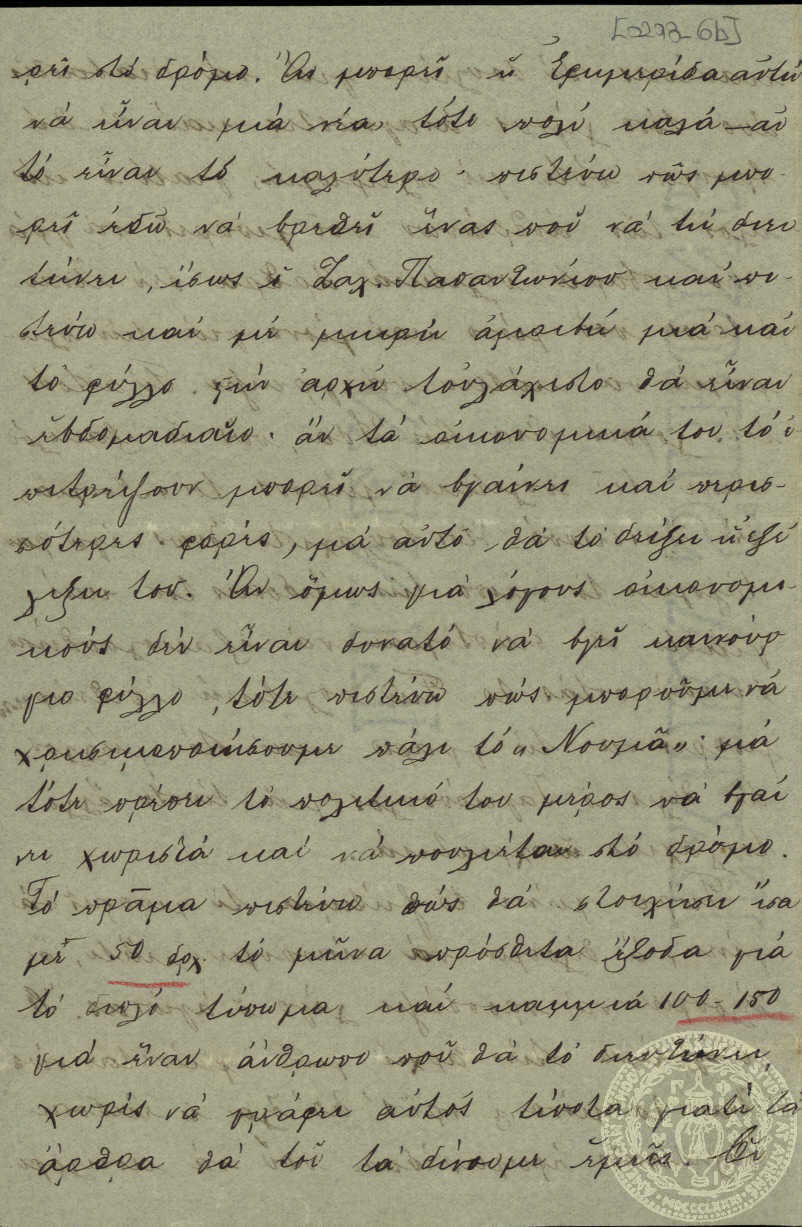 [0293-6b]
ρεῖ στὸ δρόμο. Ἂν μπορεῖ ἡ Ἐφημερίδα αὐτὴ
νὰ εἶναι μιὰ νέα, τότε πολὺ καλά — αὐ
τὸ εἶναι τὸ καλύτερο· πιστεύω πῶς μπο-
ρεῖ ἐδῶ νὰ βρεθεῖ ἕνας ποῦ νὰ τὴ διευ
τύνει, ἴσως ὁ Ζαχ. Παπαντωνίου καὶ πι-
στεύω καὶ μὲ μικρὴ ἀμοιβὴ μιὰ καὶ
τὸ φύλλο στὴν ἀρχὴ τουλάχιστο θὰ εἶναι
ἑβδομαδιαῖο· ἂν τὰ οἰκονομικά του τὸ ἐ
πιτρέψουν μπορεῖ νὰ βγαίνει καὶ περισ-
σότερες φορές, μὰ αὐτὸ θὰ τὸ δείξει ἡ ἐξέ
λιξή του. Ἂν ὅμως γιὰ λόγους οἰκονομι-
κοὺς δὲν εἶναι δυνατὸ νὰ βγεῖ καινούρ
γιο φύλλο, τότε πιστεύω πὼς μποροῦμε νὰ
χρησιμοποιήσουμε πάλι τὸ „Νουμᾶ„· μὰ
τότε πρέπει τὸ πολιτικό του μέρος νὰ βγαί
νει χωριστὰ καὶ νὰ πουλιέται στὸ δρόμο.
Τὸ πρᾶμα πιστεύω πὼς θὰ στοιχίσει ἴσα
μὲ 50 δρχ. τὸ μῆνα πρόσθετα ἔξοδα γιὰ
τὸ διπλὸ τύπωμα καὶ καμμιὰ 100-150
γιὰ ἕναν ἄνθρωπο ποῦ θὰ τὸ διευτύνει,
χωρὶς νὰ γράφει αὐτὸς τίποτα γιατὶ τὰ
ἄρθρα θὰ τοῦ τὰ δίνουμε ἐμεῖς. Οἱ